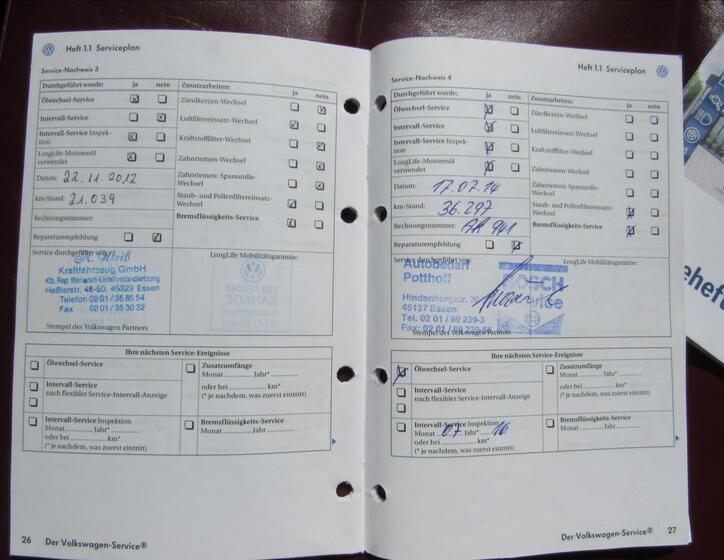 Heft 1.1 Serviceplan
Service-Nachweis 3
Durchgeführt wurde: ja nein
Ölwechsel-Service
Intervall-Service
Intervall-Service Inspek-
tion
LongLife-Motorenöl
verwendet
Datum: 22.11.2012
km-Stand: 21.039
Rechnungsnummer:
Reparaturempfehlung
Zusatzarbeiten: ja nein
Zündkerzen-Wechsel
Luftfiltereinsatz-Wechsel
Kraftstofffilter-Wechsel
Zahnriemen-Wechsel
Zahnriemen: Spannrolle-
Wechsel
Staub- und Pollenfiltereinsatz-
Wechsel
Bremsflüssigkeits-Service
Service durchgeführt von:
Kraftfahrzeug GmbH
Kfz. Rep. Werkstatt-Unfallinstandsetzung
Heßlerstr. 48-50, 45329 Essen
Telefon 02 01 / 35 85 54
Fax 02 01 / 35 30 32
Stempel des Volkswagen Partners
LongLife Mobilitätsgarantie:
Ihre nächsten Service-Ereignisse
Ölwechsel-Service
Intervall-Service
nach flexibler Service-Intervall-Anzeige
Intervall-Service Inspektion
Monat Jahr*
oder bei km*
(* je nachdem, was zuerst eintritt)
Zusatzumfänge
Monat Jahr*
oder bei km*
(* je nachdem, was zuerst eintritt)
Bremsflüssigkeits-Service
Monat Jahr
26 Der Volkswagen-Service®
Heft 1.1 Serviceplan
Service-Nachweis 4
Durchgeführt wurde: ja nein
Ölwechsel-Service
Intervall-Service
Intervall-Service Inspek-
tion
LongLife-Motorenöl
verwendet
Datum: 17.07.14
km-Stand: 36.297
Rechnungsnummer:
Reparaturempfehlung
Zusatzarbeiten: ja nein
Zündkerzen-Wechsel
Luftfiltereinsatz-Wechsel
Kraftstofffilter-Wechsel
Zahnriemen-Wechsel
Zahnriemen: Spannrolle-
Wechsel
Staub- und Pollenfiltereinsatz-
Wechsel
Bremsflüssigkeits-Service
Service durchgeführt von:
Autobedarf
Potthoff
BOSCH
Service
Hindenburgstr.
45127 Essen
Tel. 02 01 / 89 239-3
Fax: 02 01 / 89 239-56
Stempel des Volkswagen Partners
LongLife Mobilitätsgarantie:
Ihre nächsten Service-Ereignisse
Ölwechsel-Service
Intervall-Service
nach flexibler Service-Intervall-Anzeige
Intervall-Service Inspektion
Monat 07 Jahr* 16
oder bei km*
(* je nachdem, was zuerst eintritt)
Zusatzumfänge
Monat Jahr*
oder bei km*
(* je nachdem, was zuerst eintritt)
Bremsflüssigkeits-Service
Monat Jahr
Der Volkswagen-Service® 27